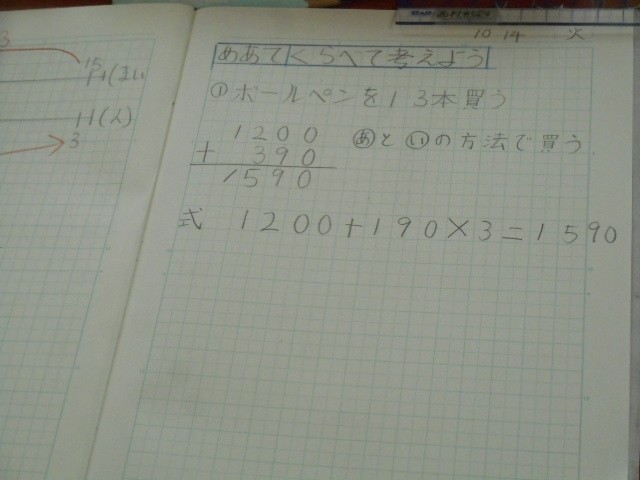 10 14 火
めあて くらべて考えよう
① ボールペンを13本買う
1200
+ 390
1590
あといの方法で買う
式 1200+190×3=1590
3
15
3